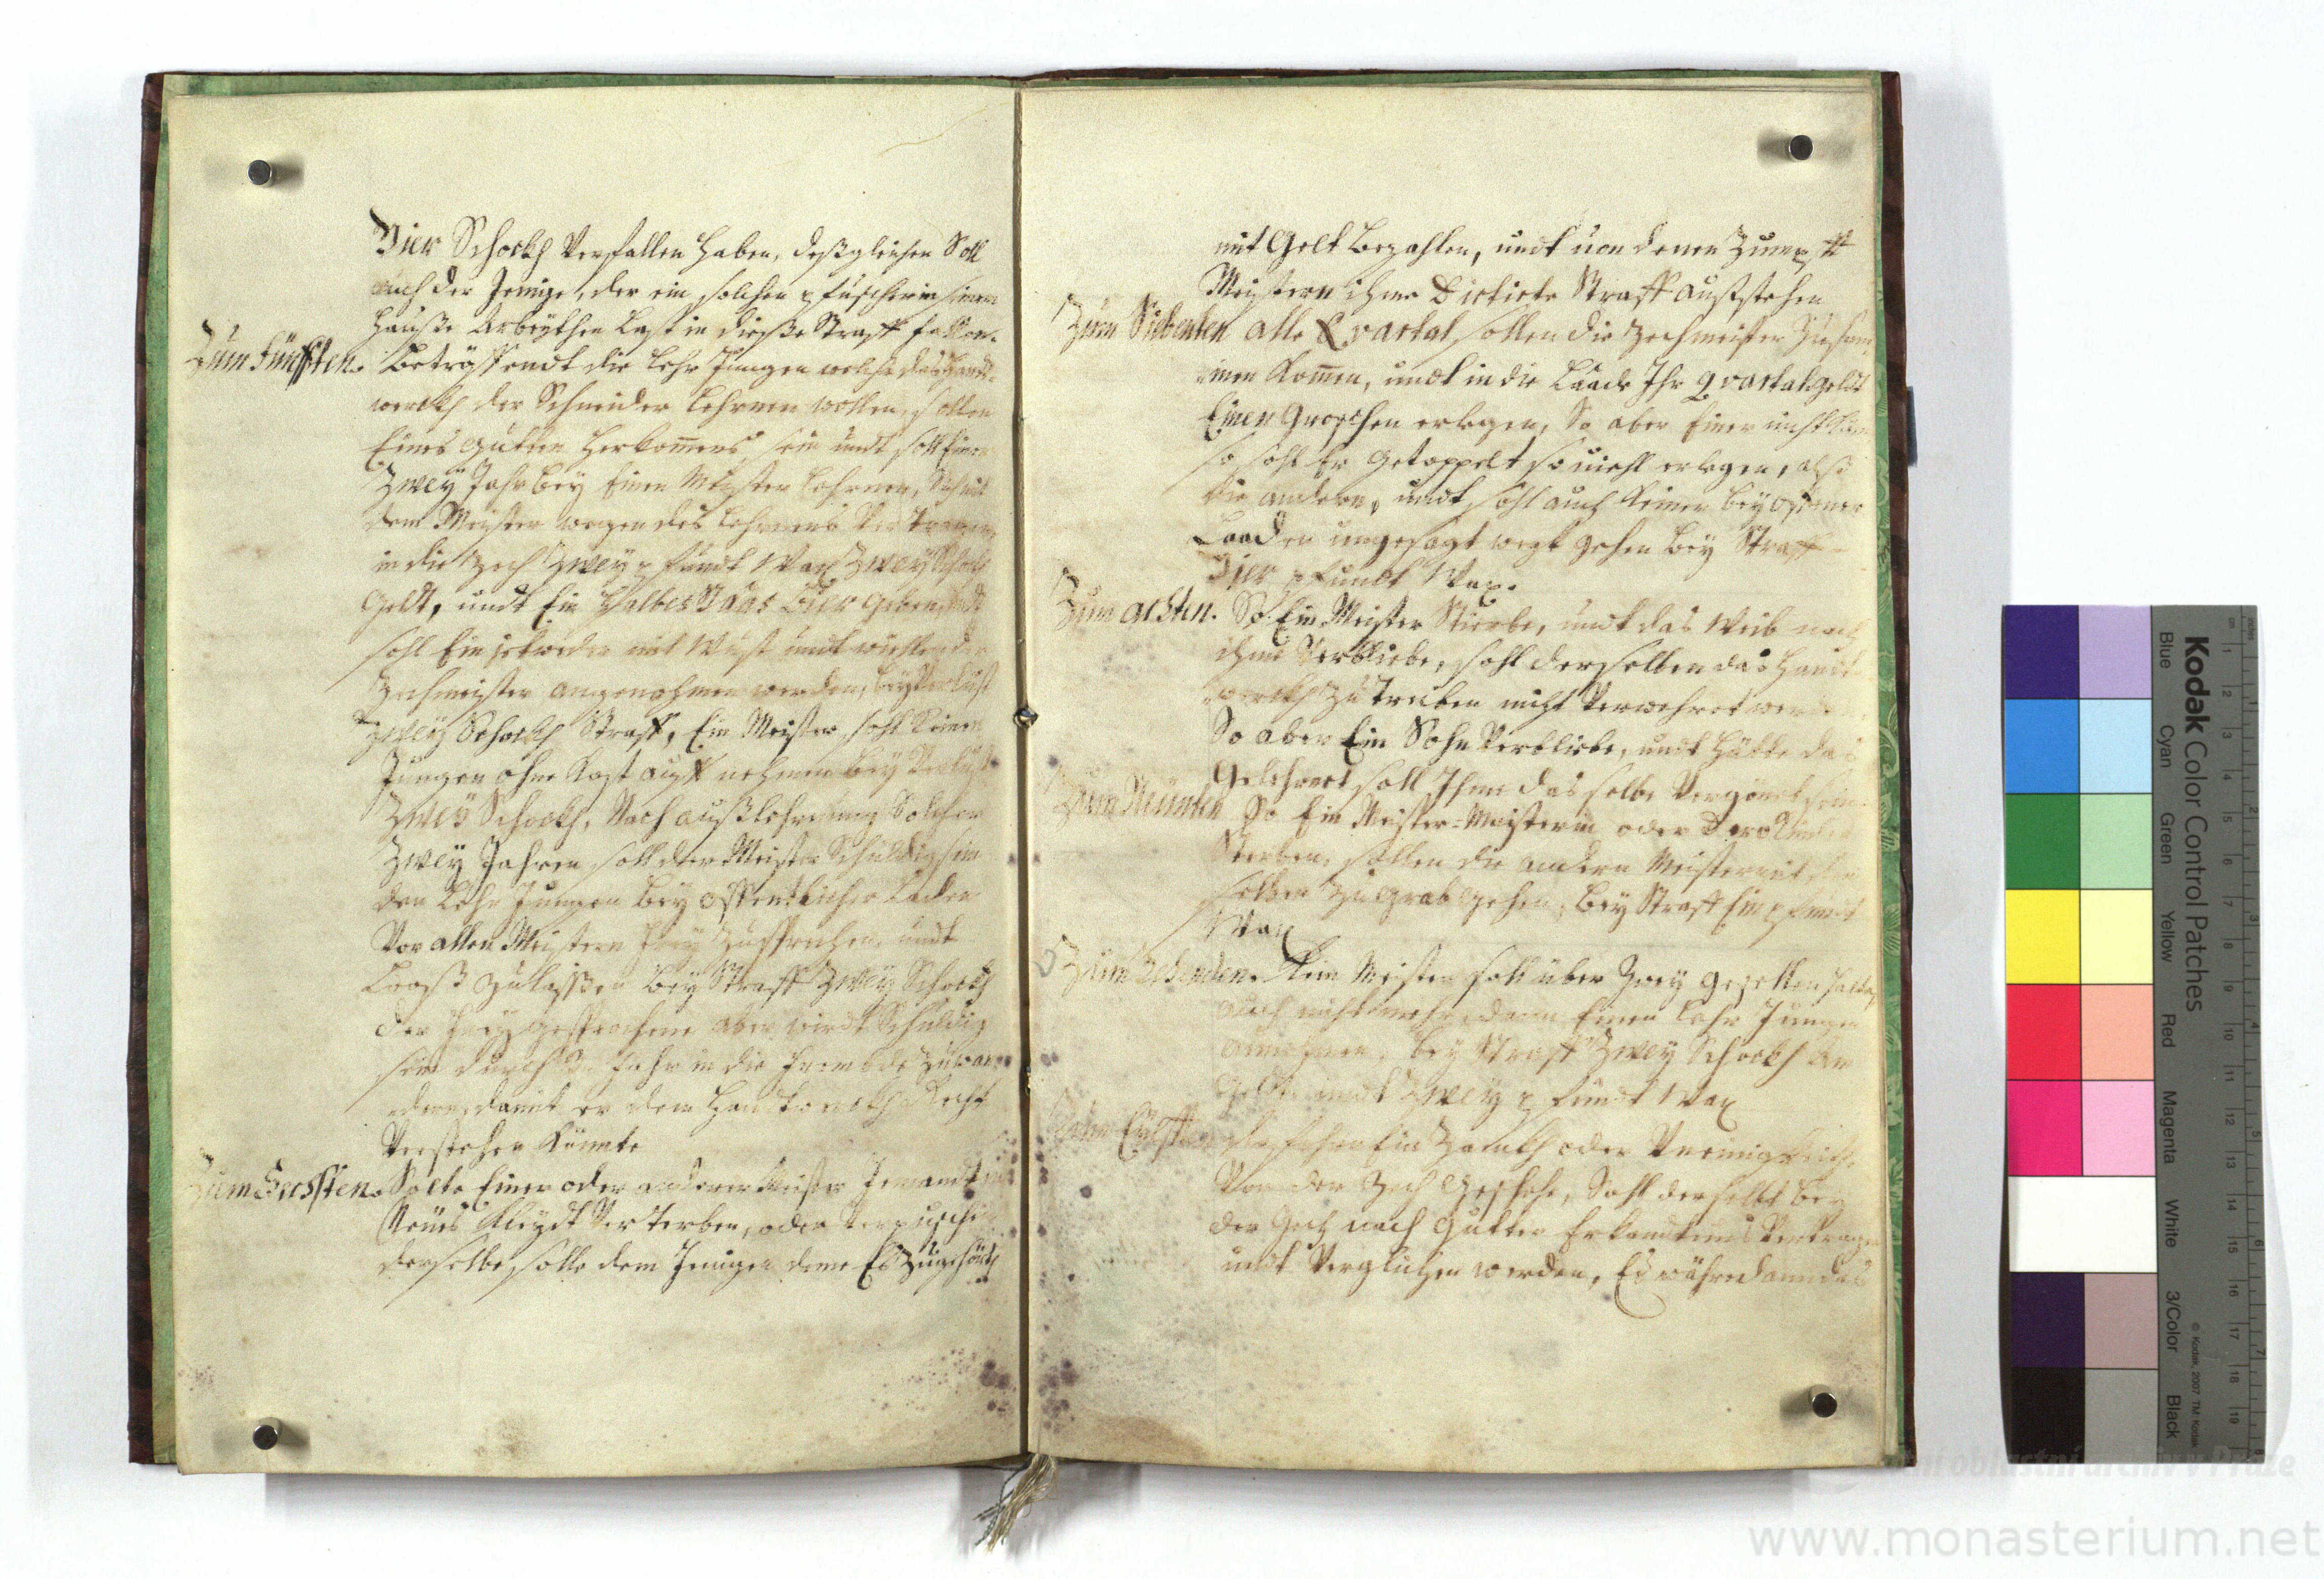 Vier Schockh Verfallen haben, deßgleichen Soll
auch der Jenige, der ein solchen pfuscher in seinem
Hauße Arbeythen Last in dieße Straff fallen.
Zum Fünfften. Betröffendt die Lehr Jungen welche das Handt-
werckh der Schneider Lehrnen wollen, sollen
Eines gutten Herkom̄ens sein undt soll Einer
Zwey Jahr bey Einen Meister Lehrnen, Sich mit
dem Meister wegen des Lehrnens Vertragen,
in die Zech Zwey pfundt Wax Zwey Schockh
Geldt, undt Ein Halbes Vaas Bier geben, undt
sohl Ein jetweder mit Wust undt wiehlen der
Zechmeister angenohmen werden, bey Verlust
Zwey Schockh Straff, Ein Meister sohl keinen
Jungen ohne Kost auff nehmen bey Verlust
Zwey Schockh, Nach außlehrnung Solcher
Zwey Jahren soll der Meister Schuldig sein
den Lehr Jungen bey offentlicher Laden
Vor allen Meistern frey zusprechen undt
Looß zulaßßen bey Straff Zwey Schockh
der frey gesprochene aber wirdt Schuldig
sein durch 3. Jahr in die frembde zuwan-
dern, damit er dem Handtwerckh Recht
Verstehen könnte
Zum Sechsten. Solte Einer oder anderer Meister Jemandt ein
Neues Kleydt Verterben, oder verpfuschen
derselbe solle dem Jenigen deme Es Zugehört
mit Gelt bezahlen, undt von denen Zumpfft
Meistern ihme Dictirte Straff außstehen
Zum Siebenten alle Qvartal sollen die Zechmeister Zusam-
men Kom̄en, undt in die Laade Ihr qvartal geldt
Einen Groschen erlegen, So aber Einer nicht käm
so sohl Er Getoppelt so viehl erlegen, alß
die andern, undt sohl auch Keiner bey offener
Laaden ungesagt wegk gehen bey Straff
Vier pfundt Wax.
Zum achten. So Ein Meister Stierbe, undt das Weib nach
ihme Verbliebe, sohl derselben das Handt-
werckh zu Treiben nicht Verwehret werden,
So aber Ein Sohn Verbliebe, undt hätte das
Gelehrnet soll Ihme das selbe Vergönet sein.
Zum Neünten So Ein Meister-Meisterin oder Dero Kinder
Sterben, sollen die andern Meister mit den
selben Zu grab gehen, bey Straff Ein pfundt
Wax
Zum Zehenden. Kein Meister soll über Zwey Gesellen halten
auch nicht mehr dann Einen Lehr Jungen
annehmen, bey Straff Zwey Schockh An
Geldt undt Zwey pfundt Wax
Zum Eylften Ein Zanckh oder Uneinigkeith,
Von der Zech Geschehe, Sohl derselbe bey
der Zech nach gutten Erkandtnus Vertragen
undt Verglichen werden, Es währe dann das
Kodak Color Control Patches
Blue Cyan Green Yellow Red Magenta White 3/Color Black
© Kodak, 2007 TM: Kodak
www.monasterium.net